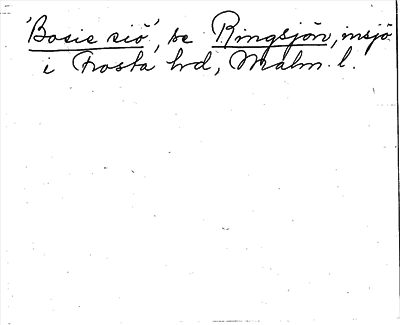 'Bosie siö', se Ringsjön, insjö
i Frosta hd, Malm. l.